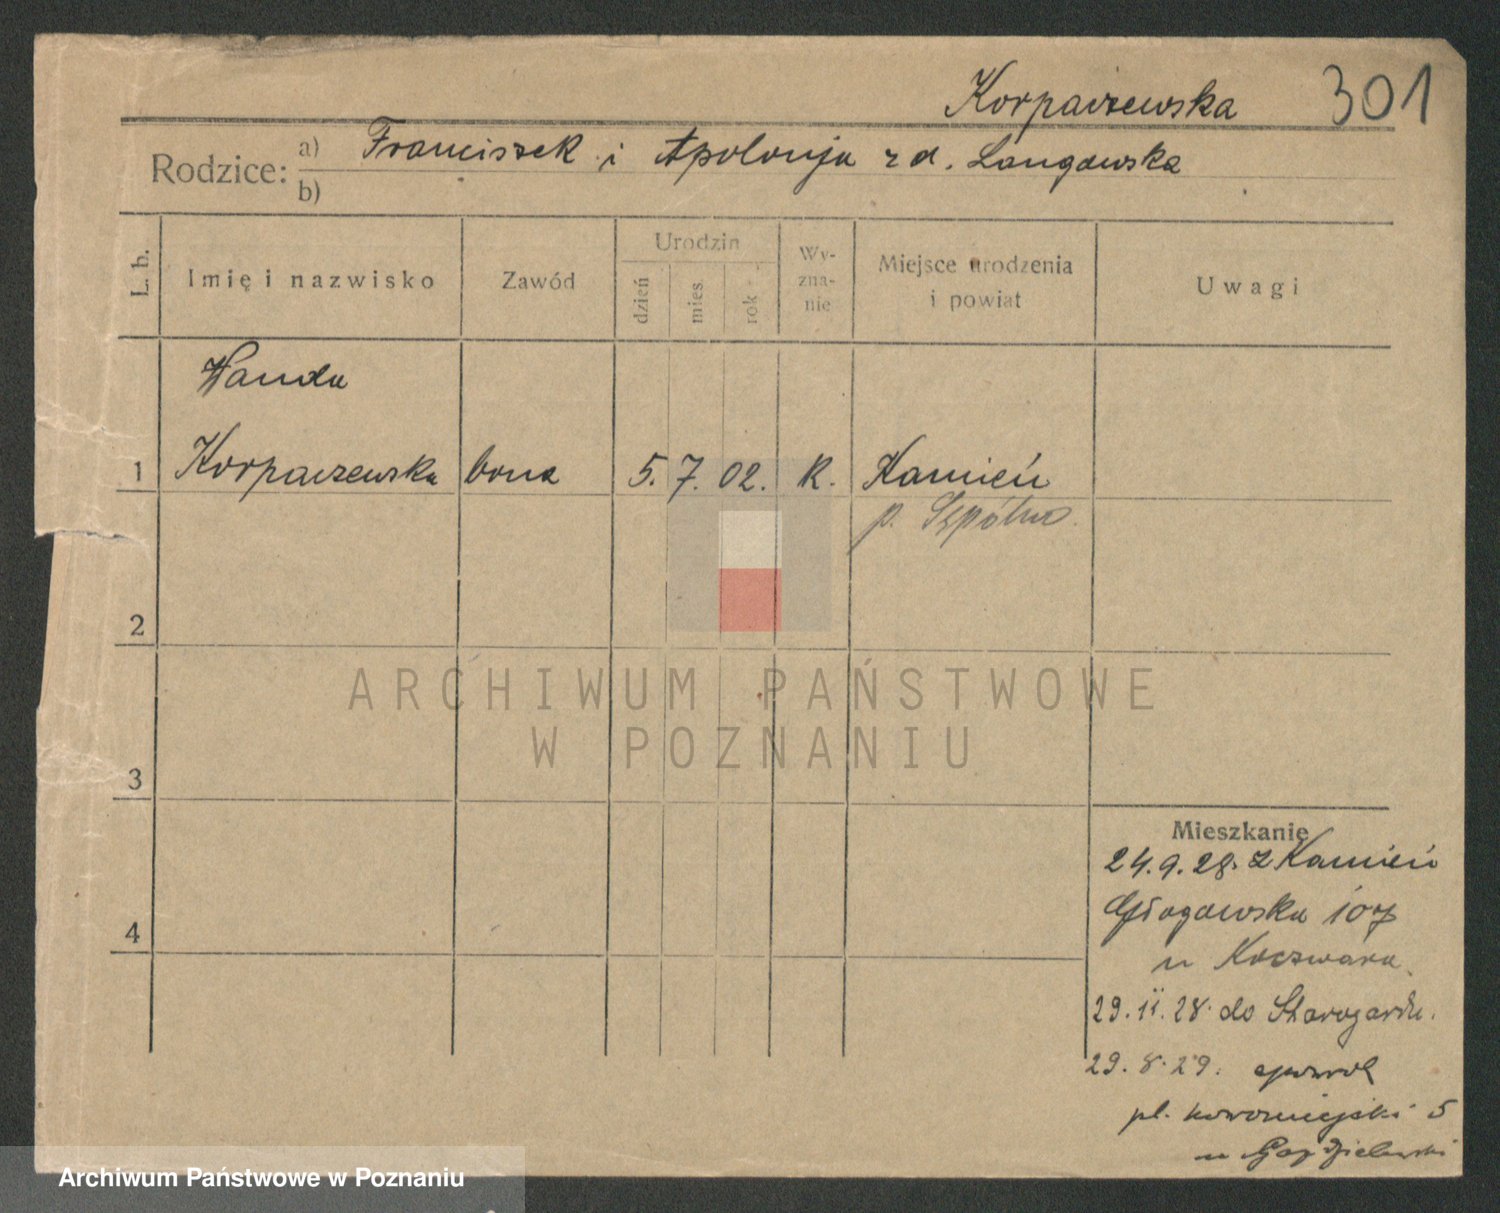 Korpaczewska 301
Rodzice: a) Franciszek i Apolonja z d. Langowska
b)
L. b. Imię i nazwisko Zawód Urodzin dzień mies. rok Wy-zna-nie Miejsce urodzenia i powiat Uwagi
Wanda
1 Korpaczewska bona 5. 7. 02. R. Kamień
p. Sępólno.
2
ARCHIWUM PAŃSTWOWE
W POZNANIU
3
Mieszkanie
24.9.28. z Kamień
4 Głogowska 107
u Koczwara
29.11.28. do Starogardu.
29.8.29.
pl. nowomiejski 5
u
Archiwum Państwowe w Poznaniu